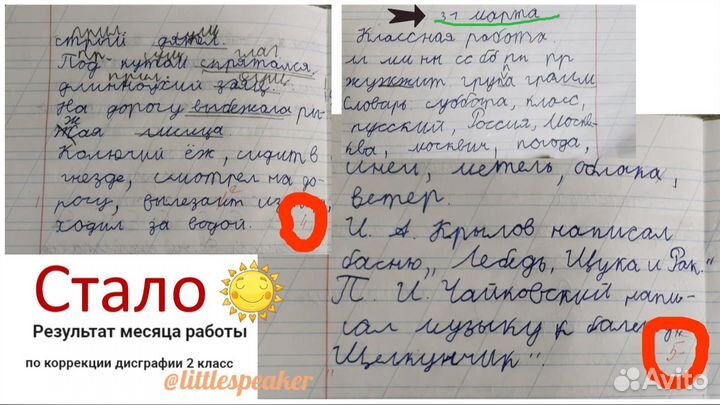 прил. сущ
стрый дятел.
пр. сущ глаг
Под кустом спрятался
прил. сущ
длинноухий заяц.
На дорогу выбежала ры-
ж
жая лисица.
Колючий ёж, сидит в
гнезде, смотрел на до-
рогу, вылезает из
ходил за водой.
4
31 марта
Классная работа.
лл мм нн сс бб пп рр
жужжит група грамм
Словарь суббота, класс,
русский, Россия, Моск-
ква, москвич, погода,
иней, метель, облака,
ветер.
И. А. Крылов написал
басню „Лебедь, Щука и Рак."
П. И. Чайковский напи-
сал музыку к бале
"Щелкунчик".
5-
Стало
Результат месяца работы
по коррекции дисграфии 2 класс
@littlespeaker
Avito